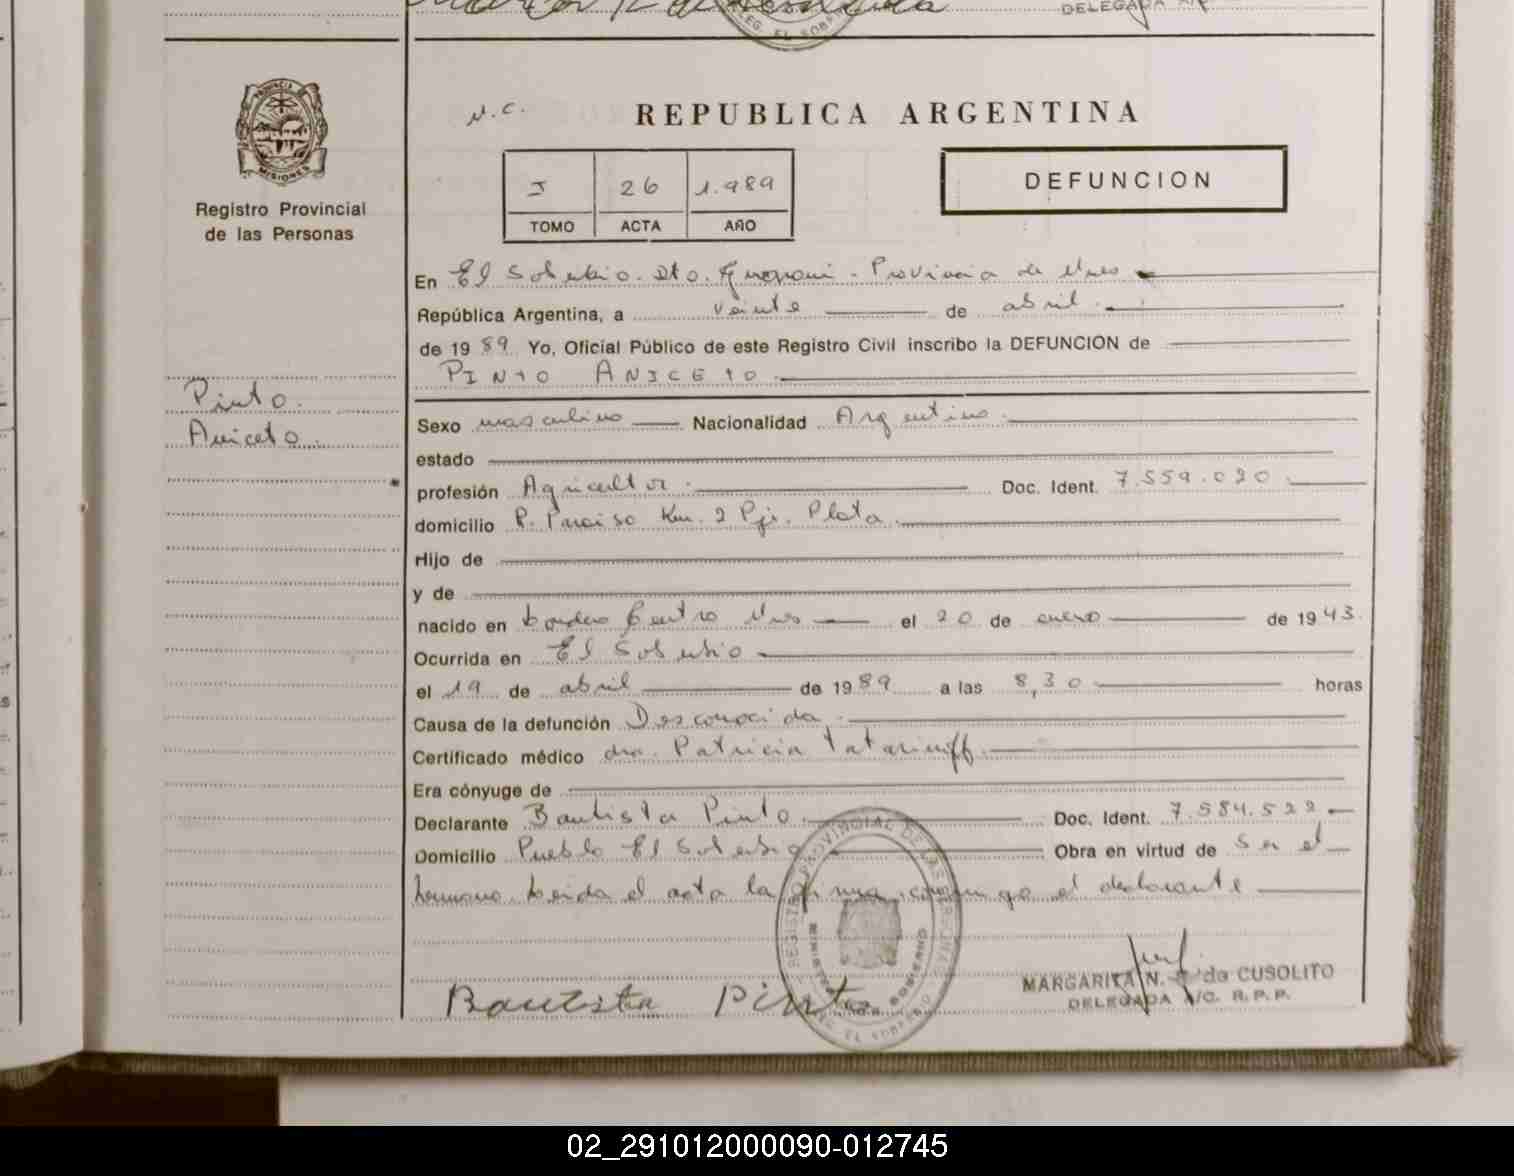 DELEGADA A/C
EL SOBERBIO
PROVINCIA DE
MISIONES
Registro Provincial
de las Personas
N.C.
REPUBLICA ARGENTINA
I 26 1.989
TOMO ACTA AÑO
DEFUNCION
En El Soberbio. Dto. Guarani - Provincia de Mnes
República Argentina, a veinte de abril.
de 1989 Yo, Oficial Público de este Registro Civil inscribo la DEFUNCION de
PINTO ANICETO
Pinto.
Aniceto.
Sexo masculino Nacionalidad Argentino.
estado
profesión Agricultor. Doc. Ident. 7.559.020
domicilio P. Paraiso Km. 2 Pje. Plata
Hijo de
y de
nacido en Centro Mnes el 20 de enero de 1943.
Ocurrida en El Soberbio
el 19 de abril de 1989 a las 8,30 horas
Causa de la defunción Desconocida.
Certificado médico dra. Patricia Tatarinoff.
Era cónyuge de
Declarante Bautista Pinto. Doc. Ident. 7.584.522
Domicilio Pueblo El Soberbio Obra en virtud de Ser el
hermano. Leida el acta la firma conmigo el declarante
REGISTRO PROVINCIAL DE LAS PERSONAS
MINISTERIO DE GOBIERNO
DELEG. EL SOBERBIO
Bautista Pinto
MARGARITA N. de CUSOLITO
DELEGADA A/C. R.P.P.
02_291012000090-012745